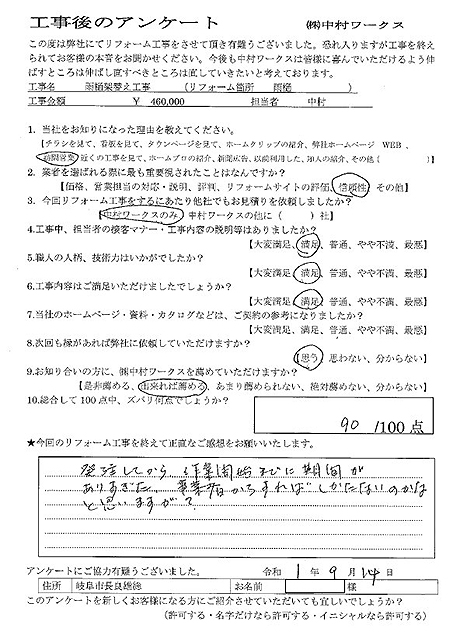 工事後のアンケート ㈱中村ワークス
この度は弊社にてリフォーム工事をさせて頂き有難うございました。恐れ入りますが工事を終え
られてお客様の本音をお聞かせください。今後も中村ワークスは皆様に喜んでいただけるよう伸
ばすところは伸ばし直すべきところは直していきたいと考えております。
工事名 雨樋架替え工事 （リフォーム箇所 雨樋 ）
工事金額 ￥ 460,000 担当者 中村
1. 当社をお知りになった理由を教えてください。
【チラシを見て、看板を見て、タウンページを見て、ホームクリップの紹介、弊社ホームページ WEB、
訪問営業 近くの工事を見て、ホームプロの紹介、新聞広告、以前利用した、知人の紹介、その他（ ）】
2. 業者を選ばれる際に最も重要視されたことはなんですか？
【価格、営業担当の対応・説明、評判、リフォームサイトの評価、信頼性、その他】
3. 今回リフォーム工事をするにあたり他社でもお見積りを依頼しましたか？
【中村ワークスのみ 中村ワークスの他に（ ）社】
4.工事中、担当者の接客マナー・工事内容の説明等はありましたか？
【大変満足、満足、普通、やや不満、最悪】
5.職人の人柄、技術力はいかがでしたか？
【大変満足、満足、普通、やや不満、最悪】
6.工事内容はご満足いただけましたでしょうか？
【大変満足、満足、普通、やや不満、最悪】
7.当社のホームページ・資料・カタログなどは、ご契約の参考になりましたか？
【大変満足、満足、普通、やや不満、最悪】
8.次回も縁があれば弊社に依頼していただけますか？
【思う 思わない、分からない】
9.お知り合いの方に、㈱中村ワークスを薦めていただけますか？
【是非薦める、出来れば薦める、あまり薦められない、絶対薦めない、分からない】
10.総合して 100 点中、ズバリ何点でしょうか？
90 /100 点
★今回のリフォーム工事を終えて正直なご感想をお願いいたします。
発注してから 作業開始までに期間が
ありすぎた。業者からすればしかたないのかな
と思いますが
アンケートにご協力有難うございました。 令和 1 年 9 月 14 日
住所 岐阜市長良雄総 お名前 様
このアンケートを新しくお客様になる方にご紹介させていただいても宜しいでしょうか？
（許可する・名字だけなら許可する・イニシャルなら許可する）